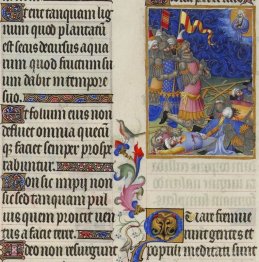 Et erit tanquam lig
num quod plantatū
est secus decursus aqua
rum quod fructum su
um dabit in tempore
suo.
Et folium eius non
defluet omnia quecū
q; faciet semper prospe
rabuntur.
Non sic impii non
sic sed tanquam pul
uis quem proicit ven
tus a facie terre.
Ideo non resurgunt
Quare fremue
runt gentes et
populi meditati sunt